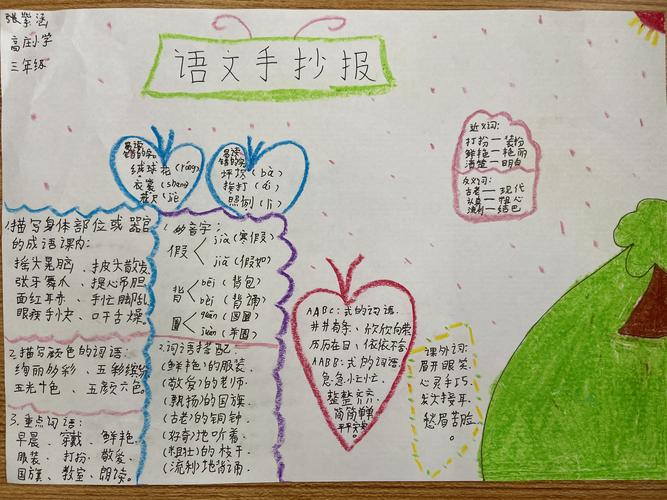 张紫涵
高庄小学
三年练
语文手抄报
易读错的字:
绒球花(róng)
衣裳(shang)
易读错的字:
坪坝(bà)
挨打(ái)
近义词:
打扮——装扮
鲜艳——艳丽
清楚——明白
反义词:
古老——现代
认真——粗心
流利——结巴
1.描写身体部位或器官
的成语课内:
摇头晃脑、披头散发
张牙舞爪、提心吊胆
面红耳赤、手忙脚乱
眼疾手快、口干舌燥。
2.描写颜色的词语:
绚丽多彩、五彩缤纷
五光十色、五颜六色。
3.重点词语:
早晨、穿戴、鲜艳、
服装、打扮、敬爱、
国旗、教室、朗读。
1.多音字:
假 jià(寒假)
jiǎ(假如)
背 bēi(背包)
bèi(背诵)
圈 quān(圆圈)
juàn(羊圈)
2.词语搭配
(鲜艳)的服装.
(敬爱)的老师.
(飘扬)的国旗.
(古老)的铜钟.
(好奇)地听着.
(粗壮)的枝干
(流利)地背诵
AABC:式的词语.
井井有条、欣欣向荣
历历在目、依依不舍
AABB:式的词语.
急急忙忙.
整整齐齐.
简简单单
平平安安.
课外词:
眉开眼笑.
心灵手巧.
愁眉苦脸.